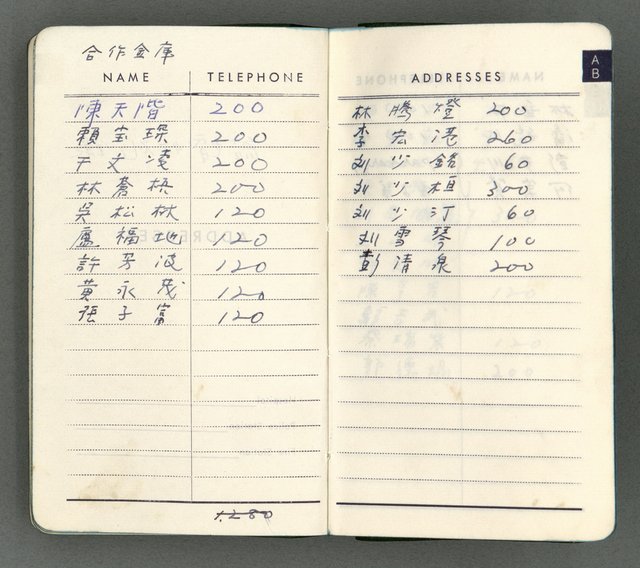 合作金庫
NAME TELEPHONE
陳天階 200
賴萱璪 200
干文凌 200
林蒼梧 200
吳松林 120
盧福地 120
許芳波 120
黃永茂 120
張子富 120
1.280
ADDRESSES
A
B
林腾燈 200
李宏港 260
刘少銘 60
刘少桓 300
刘少汀 60
刘雪琴 100
彭清泉 200